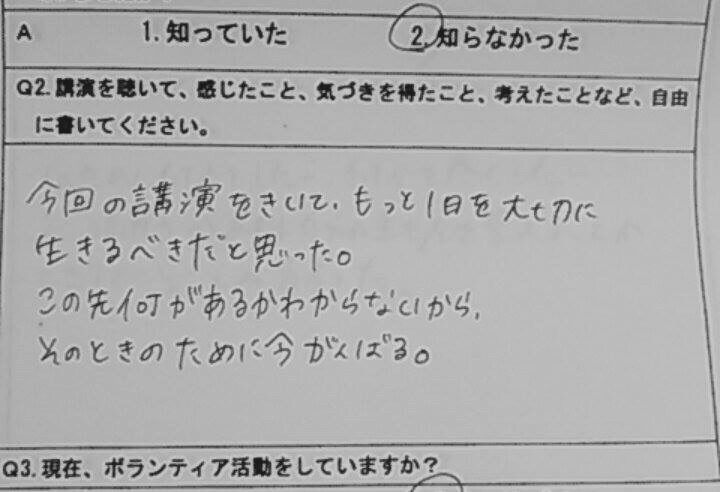 A 1.知っていた 2.知らなかった
Q2.講演を聴いて、感じたこと、気づきを得たこと、考えたことなど、自由
に書いてください。
今回の講演をきいて、もっと1日を大切に
生きるべきだと思った。
この先何があるかわからないから、
そのときのために今がんばる。
Q3.現在、ボランティア活動をしていますか？